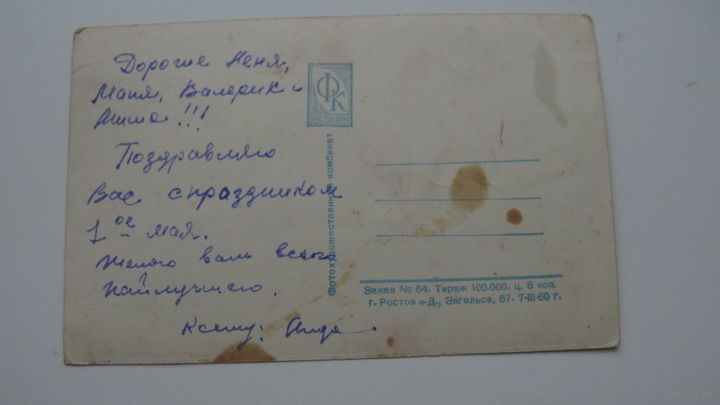 Дорогие Неня,
Маня, Валерик и
Анта!!!
Поздравляю
Вас с праздником
1ое мая.
Желаю вам всего
наилучшего.
Аида.
ФК
Фотохудожественный комбинат
Заказ № 54. Тираж 100.000. ц. 8 коп.
г. Ростов н-Д., Энгельса, 57. 7-III-60 г.